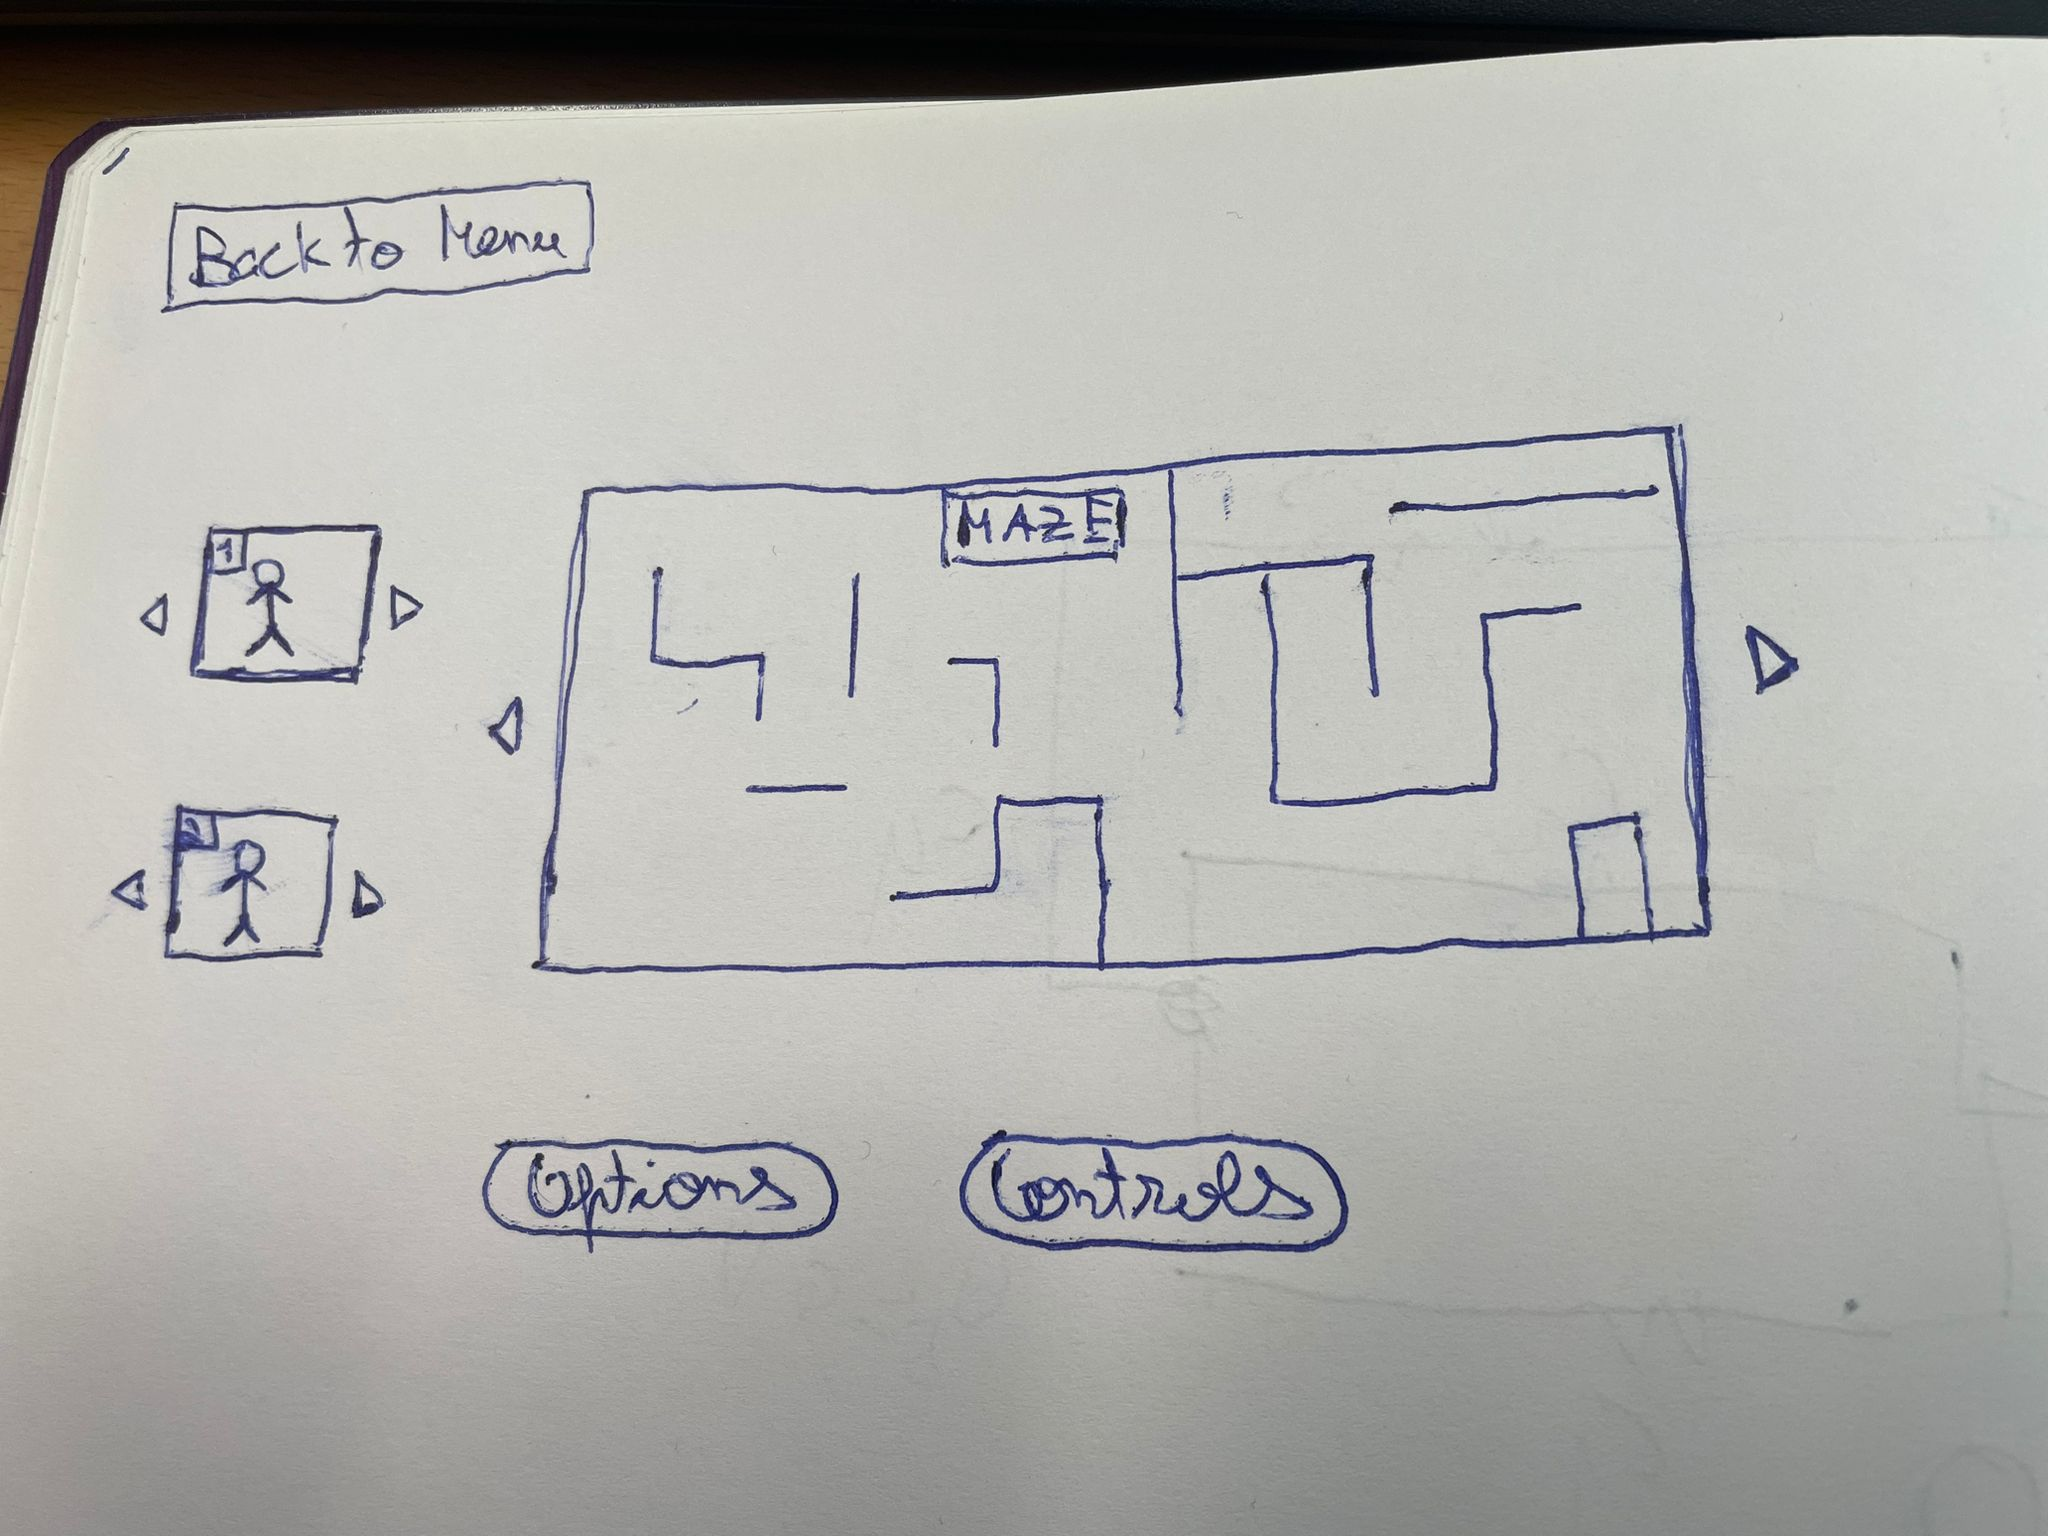 Back to Menu
MAZE
1
2
Options
Controls